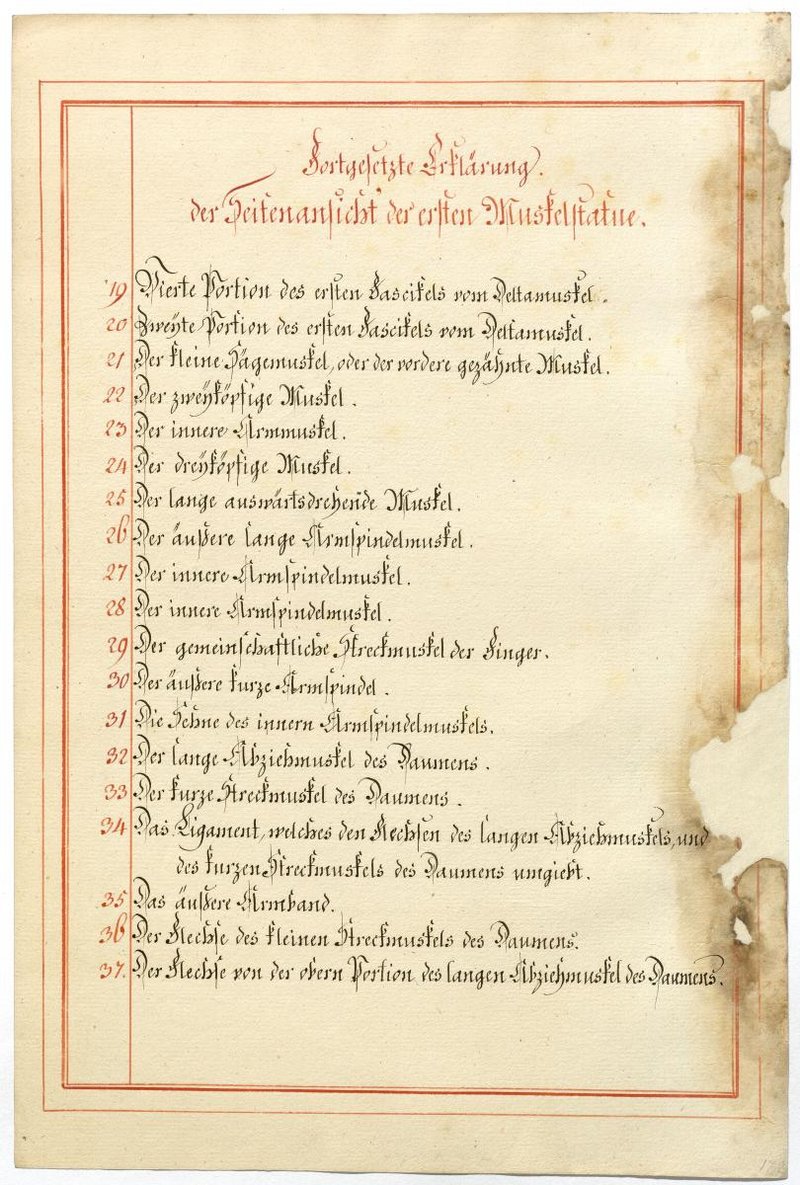 Fortgesetzte Erklärung.
der Seitenansicht der ersten Muskelstatue.
19 Vierte Portion des ersten Fascikels vom Deltamuskel.
20 Zweyte Portion des ersten Fascikels vom Deltamuskel.
21 Der kleine Sägemuskel, oder der vordere gezähnte Muskel.
22 Der zweyköpfige Muskel.
23 Der innere Armmuskel.
24 Der dreyköpfige Muskel.
25 Der lange auswärtsdrehende Muskel.
26 Der äußere lange Armspindelmuskel.
27 Der innere Armspindelmuskel.
28 Der innere Armspindelmuskel.
29 Der gemeinschaftliche Streckmuskel der Finger.
30 Der äußere kurze Armspindel.
31 Die Sehne des innern Armspindelmuskels.
32 Der lange Abziehmuskel des Daumens.
33 Der kurze Streckmuskel des Daumens.
34 Das Ligament, welches den Flechsen des langen Abziehmuskels, und
des kurzen Streckmuskels des Daumens umgiebt.
35 Das äußere Armband.
36 Der Flechse des kleinen Streckmuskels des Daumens.
37. Der Flechse von der obern Portion des langen Abziehmuskel des Daumens.